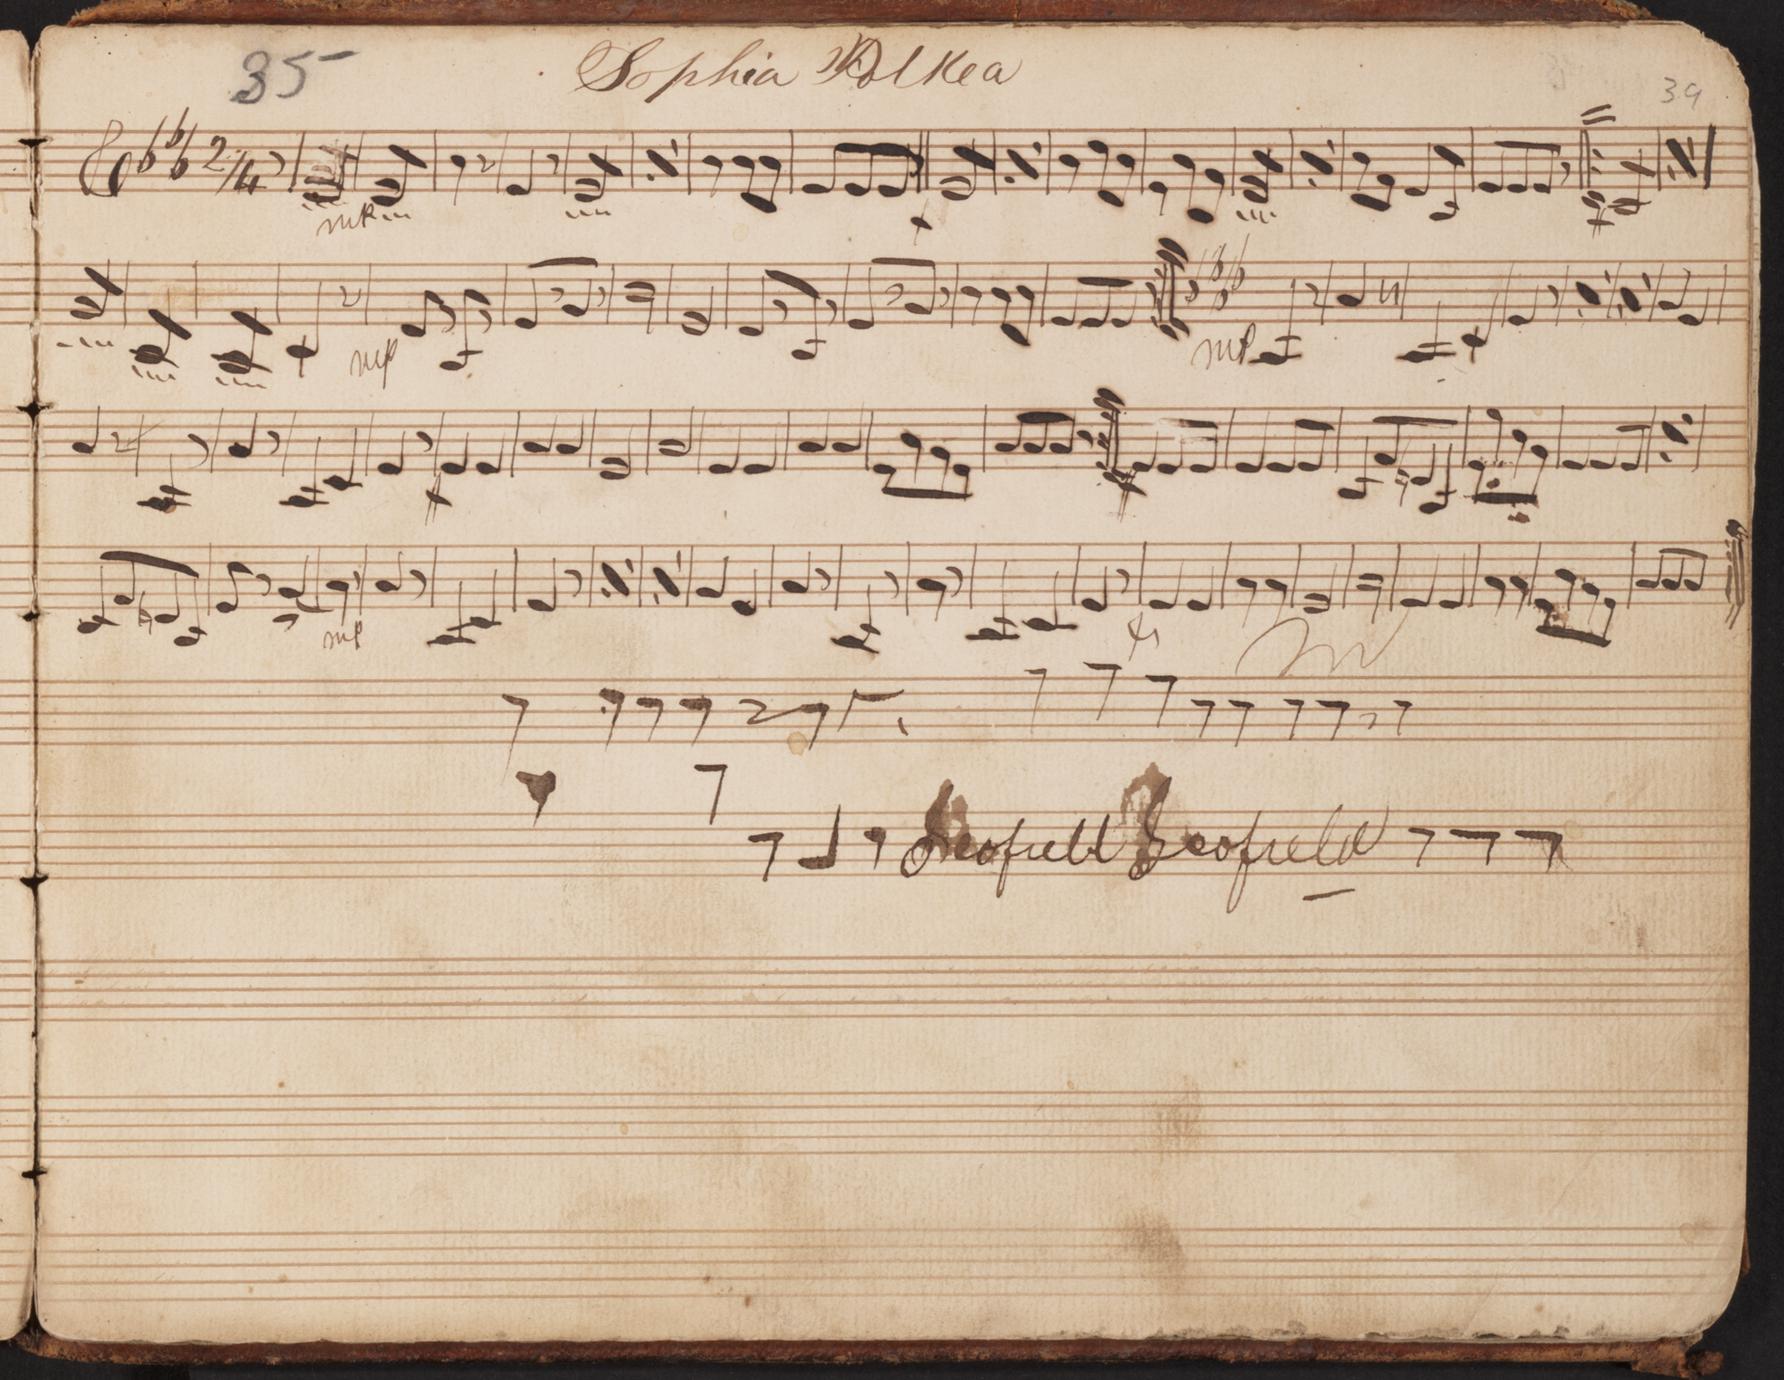 35 Sophia Polkea 39
2/4
mp
mp mp
mp
Scofield Scofield